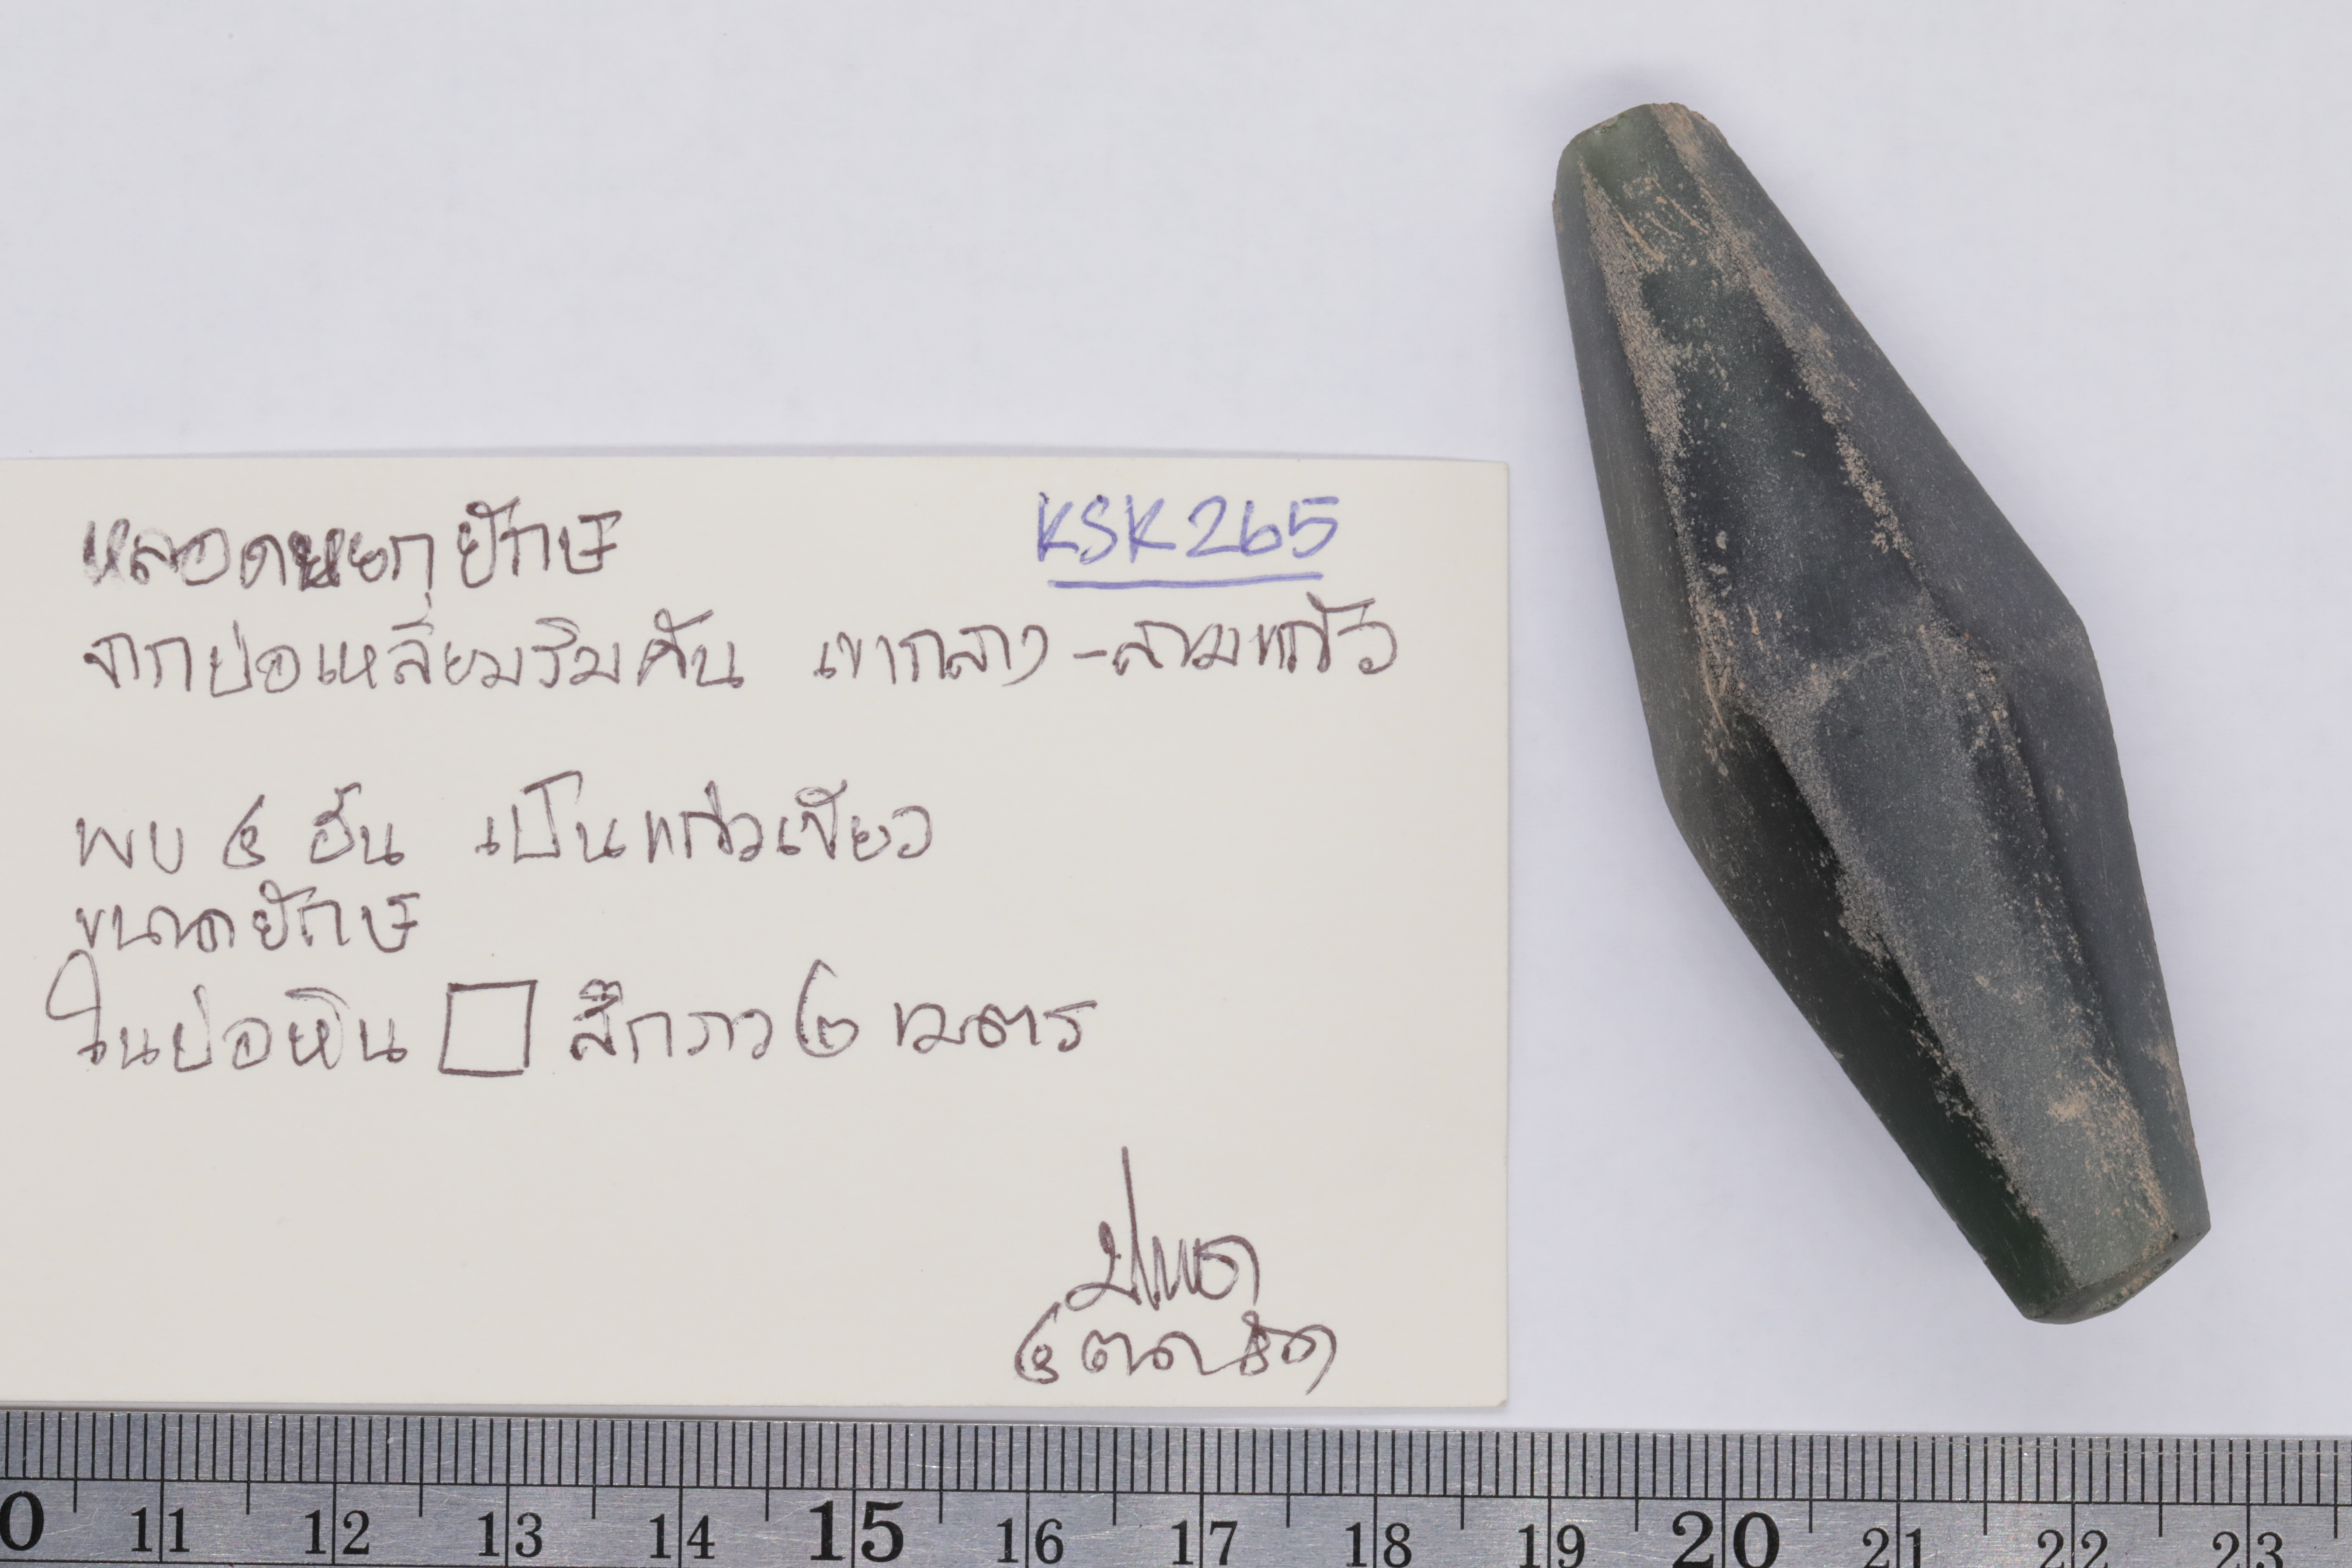 หลอดหยกยักษ์
KSK265
จากบ่อเหลี่ยมริมคัน เขากลาง-สามแก้ว
พบ ๕ ชิ้น เป็นแก้วเขียว
ขนาดยักษ์
ในบ่อหิน □ ลึกราว ๒ เมตร
11 12 13 14 15 16 17 18 19 20 21 22 23